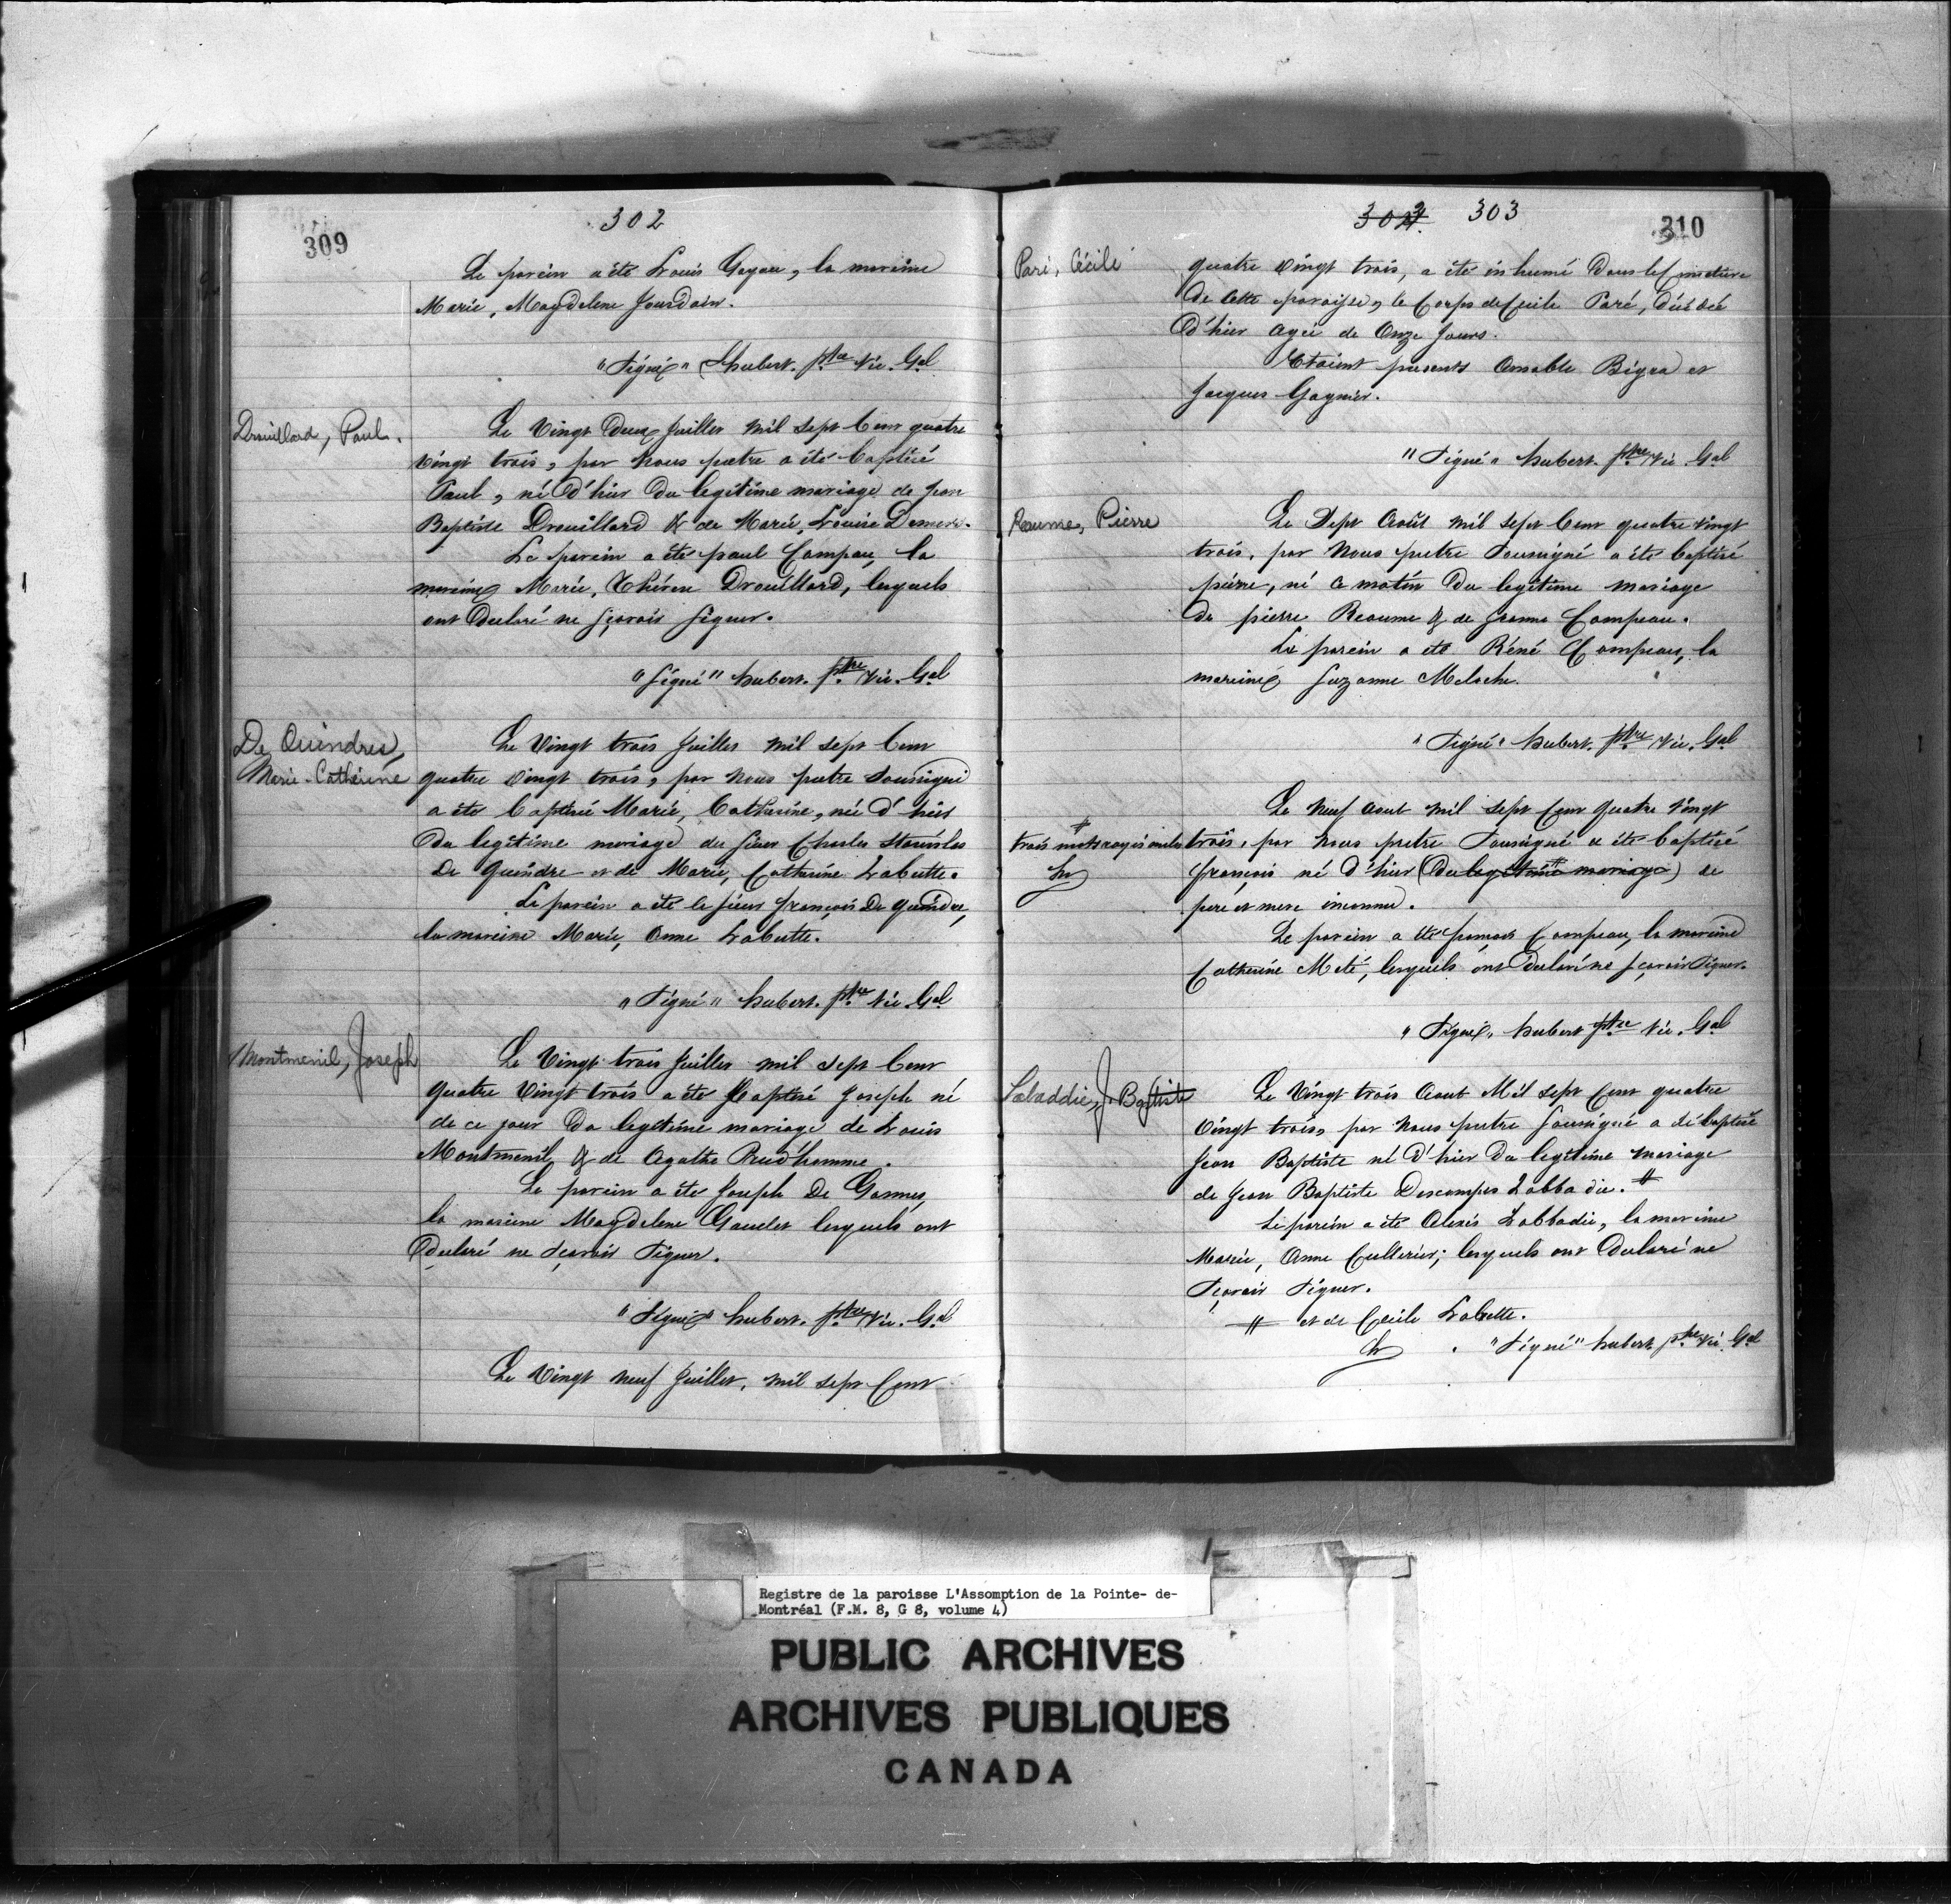 302
309
Le parein a été Louis Goyau, la mareine
Marie, Magdelene Jourdain.
"Signé" Hubert. ptre Vic. Gal
Drouillard, Paul.
Le Vingt Deux Juillet mil sept Cent quatre
vingt trois, par Nous pretre a été baptisé
Paul, né d'hier du legitime mariage de Jean
Baptiste Drouillard & de Marie, Louise
Le parein a été paul Campau, la
mareine Marie, Thérese Drouillard, lesquels
ont Declaré ne sçavoir signer.
"Signé" hubert. ptre Vic. Gal
De Quindres,
Marie-Catherine
Le Vingt trois Juillet mil sept Cent
quatre vingt trois, par Nous pretre soussigné
a été baptisé Marie, Catherine, née d'hier
du legitime mariage du sieur Charles Stanislas
De Quindre et de Marie, Catherine Labutte.
Le parein a été le sieur françois De Quindre,
la mareine Marie, Anne Labutte.
"Signé" hubert. ptre Vic. Gal
Montmenil, Joseph
Le Vingt trois Juillet mil sept Cent
quatre Vingt trois a été Baptisé Joseph né
de ce jour Du legitime mariage de Louis
Montmenil & de Agathe Prud'homme.
Le parein a été Joseph De Gannes,
la mareine Magdelene Gaudet lesquels ont
Declaré ne sçavoir signer.
"Signé" hubert. ptre Vic. Gal
Le Vingt neuf Juillet, mil sept Cent
302 303
310
Paré, Cécile
quatre vingt trois, a été inhumé Dans le Cimetiere
de cette paroisse, le Corps de Cecile Paré, décédé
D'hier agée de Onze Jours.
Etoient presents Amable Bigra et
Jacques Gagnier.
"Signé" hubert. ptre Vic Gal
Reaume, Pierre
Le Sept Août mil sept Cent quatre vingt
trois, par Nous pretre soussigné a été baptisé
pierre, né ce matin Du legitime mariage
de pierre Reaume & de Jeanne Campeau.
Le parein a été Réné Campeau, la
mareine Suzanne Meloche.
"Signé" hubert. ptre Vic. Gal
Le Neuf Aout mil sept Cent quatre Vingt
# trois mots rayés nuls
h
trois, par nous pretre soussigné a été baptisé
françois né d'hier (Du legitime # mariage) de
pere et mere inconnu.
Le parein a été françois Campeau, la mareine
Catherine Meté, lesquels ont Declaré ne sçavoir signer.
"Signé" hubert ptre Vic. Gal
Labaddie, J. Baptiste
Le Vingt trois Aout Mil sept Cent quatre
Vingt trois, par Nous pretre soussigné a été baptisé
Jean Baptiste né d'hier Du legitime mariage
de Jean Baptiste Descompes Labbadie. #
Le parein a été Alexis Labbadie, la mareine
Marie, Anne Cullerier; lesquels ont Declaré ne
sçavoir signer.
# et de Cecile Labutte.
h "Signé" hubert ptre Vic. Gal
Registre de la paroisse L'Assomption de la Pointe- de-
Montréal (F.M. 8, G 8, volume 4)
PUBLIC ARCHIVES
ARCHIVES PUBLIQUES
CANADA